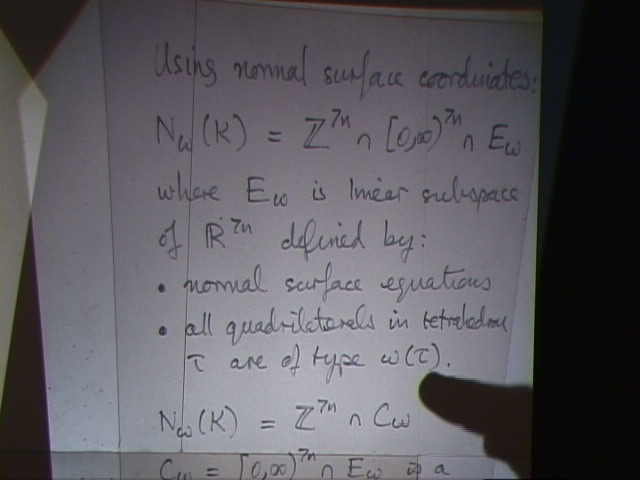 Using normal surface coordinates:
N_ω(K) = ℤ^{7n} ∩ [0,∞)^{7n} ∩ E_ω
where E_ω is linear subspace
of ℝ^{7n} defined by:
• normal surface equations
• all quadrilaterals in tetrahedron
τ are of type ω(τ).
N_ω(K) = ℤ^{7n} ∩ C_ω
C_ω = [0,∞)^{7n} ∩ E_ω is a